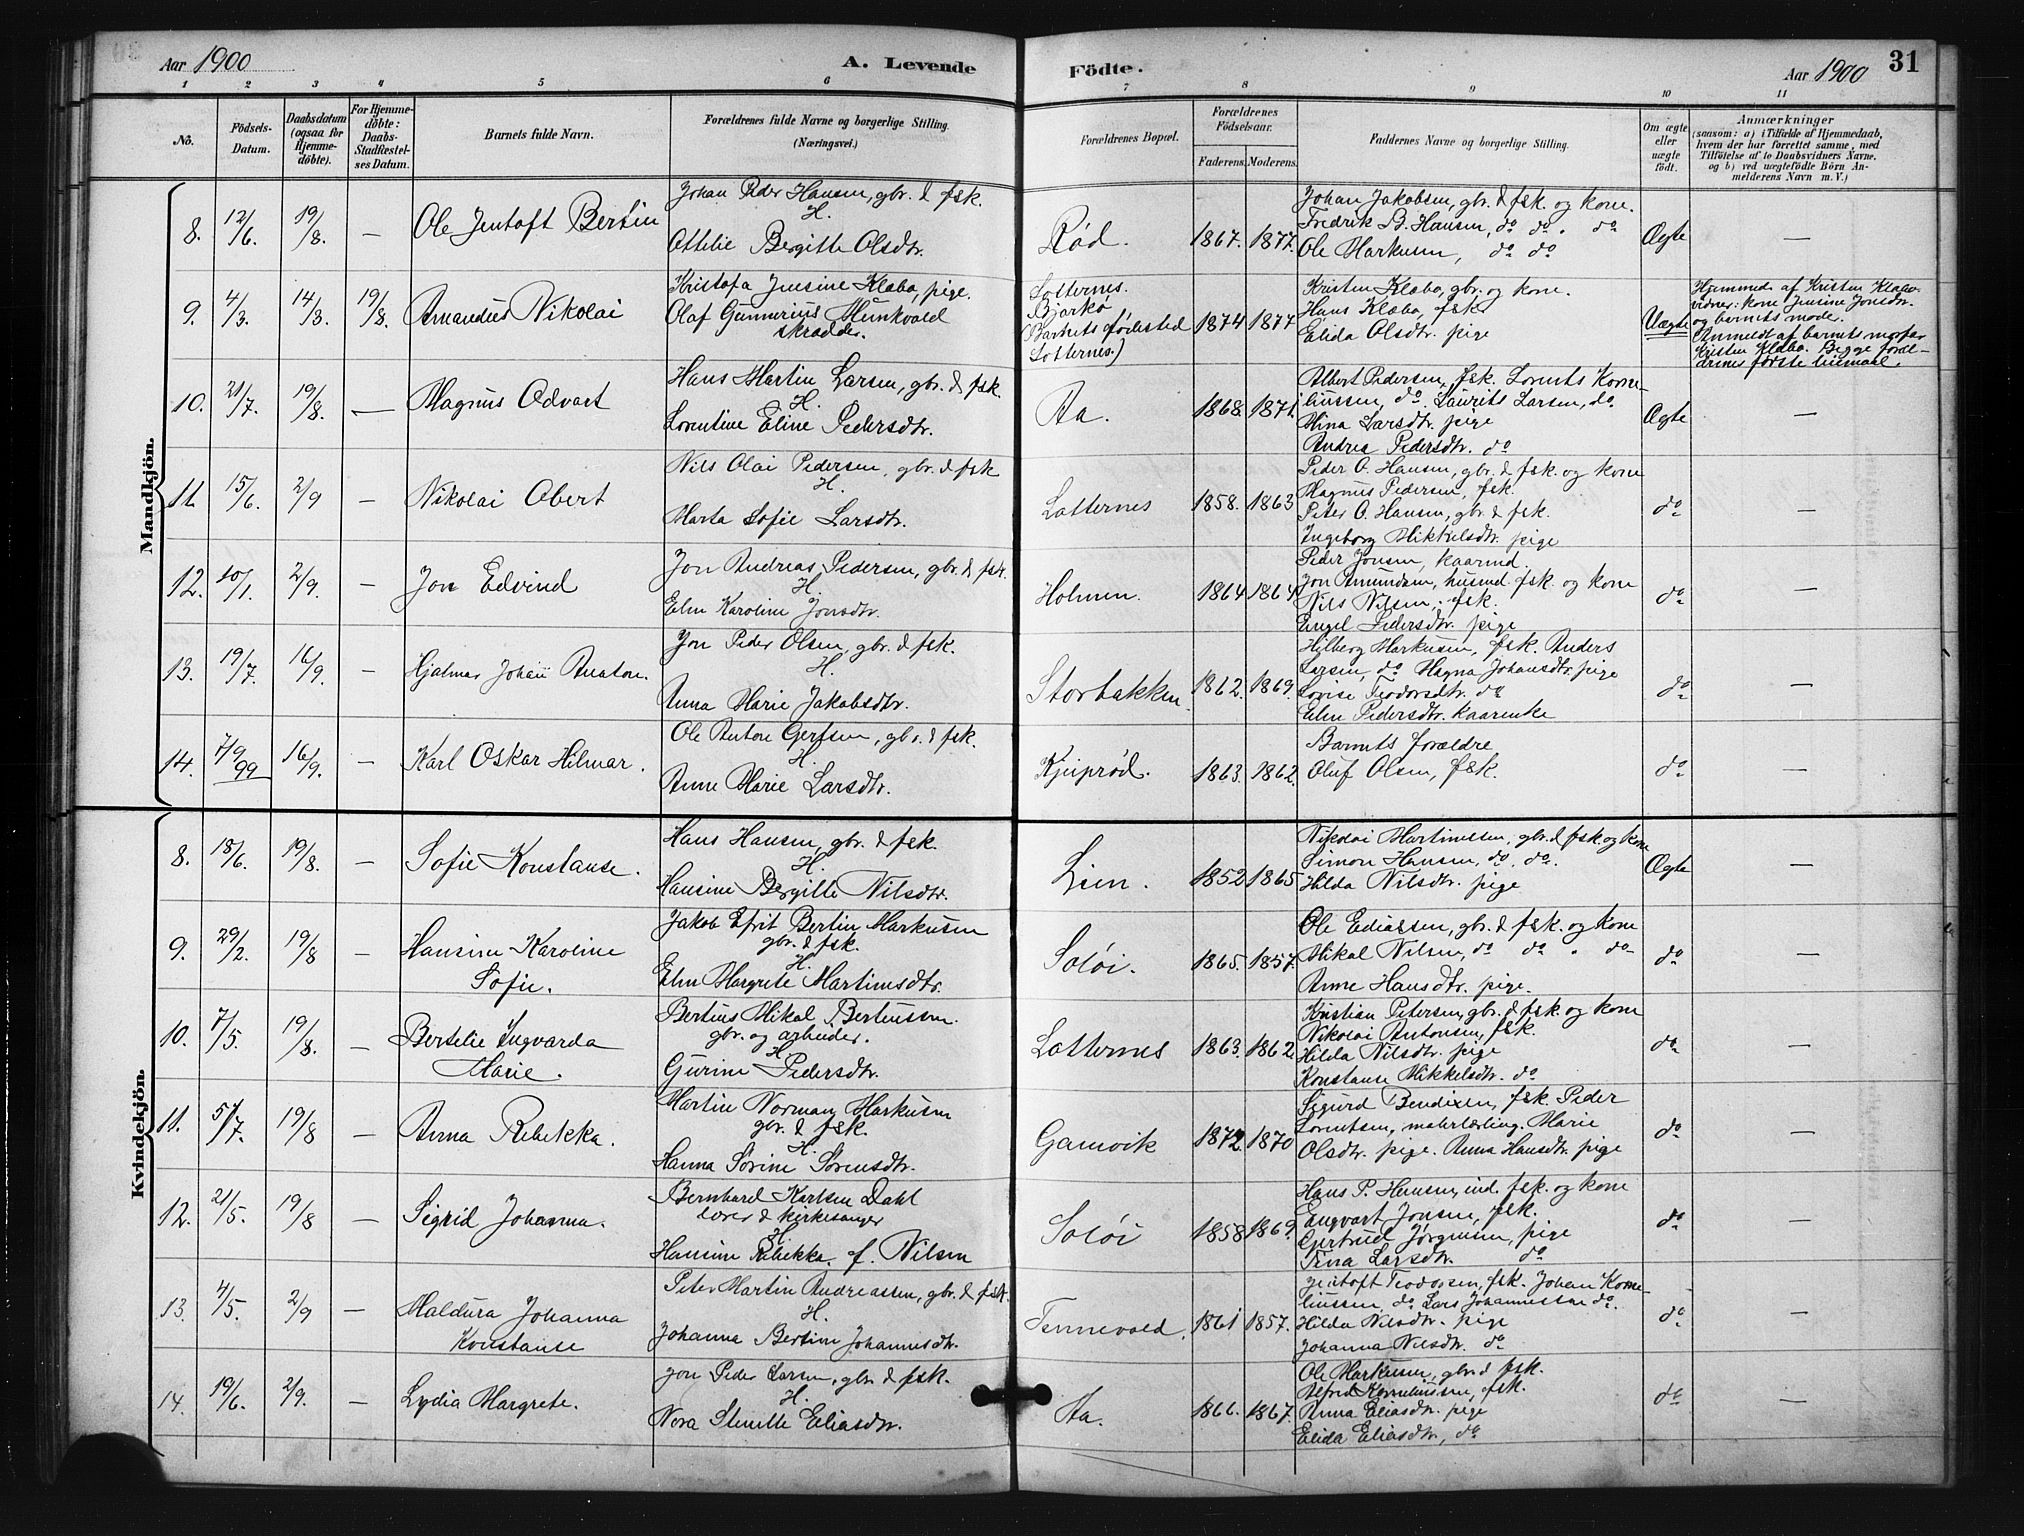 Aar 1900
A. Levende
Födte.
Aar 1900 31
1 2 3 4 5 6 7 8 9 10 11
No.
Födsels-
Datum.
Daabsdatum
(ogsaa for
Hjemme-
döbte).
For Hjemme-
döbte:
Daabs-
Stadfæstel-
ses Datum.
Barnets fulde Navn.
Forældrenes fulde Navne og borgerlige Stilling.
(Næringsvei.)
Forældrenes Bopæl.
Forældrenes
Födselsaar.
Faderens. Moderens.
Faddernes Navne og borgerlige Stilling.
Om ægte
eller
uægte
födt.
Anmærkninger
(saasom: a) i Tilfælde af Hjemmedaab,
hvem der har forrettet samme, med
Tilföielse af to Daabsvidners Navne,
og b) ved uægtefödte Börn An-
melderens Navn m. V.)
Mandkjön.
8. 12/6. 19/8. — Ole Jentoft Bertin
Johan Peder Hansen, gbr. & fsk.
H.
Othilie Bergitte Olsdtr.
Rød. 1867. 1877.
Johan Jakobsen, gbr. & fsk. og kone.
Fredrik B. Hansen, do do. do
Ole Markusen, do do
Ægte —
9. 4/3. 14/3. 19/8. Amandus Nikolai
Kristofa Jensine Klæbo, pige.
Olaf Gunnerius Munkvold
skrædder.
Lotternes.
Bjarkø
(Barnets fødested
Lotternes.)
1874 1877
Kristen Klæbo, gbr. og kone.
Hans Klæbo, fsk
Elida Olsdtr. pige
Uægte
Hjemmed. af Kristen Klæbo.
vidner: kone Jensine Jonsdtr.
og barnets moder.
Anmeldt af barnets morfar
Kristen Klæbo. Begge foræl-
drenes første leiermaal.
10. 21/7. 19/8. — Magnus Edvart
Hans Martin Larsen, gbr. & fsk.
H.
Lorentine Eline Pedersdtr.
Aa. 1868. 1871.
Albert Pedersen, fsk. Lorents Korne-
liussen, do Laurits Larsen, do.
Mina Larsdtr. pige
Andrea Pedersdtr. do
Ægte —
11. 15/6. 2/9 — Nikolai Obert
Nils Olai Pedersen, gbr. & fsk
H.
Marta Sofie Larsdtr.
Lotternes 1858. 1863
Peder O. Hansen, gbr. & fsk. og kone
Magnus Pedersen, fsk.
Peter O. Hansen, gbr. & fsk.
Ingeborg Mikkelsdtr. pige
do —
12. 20/1. 2/9. — Jon Edvind
Jon Andreas Pedersen, gbr. & fsk.
H.
Elen Karoline Jonsdtr.
Holmen. 1864 1864
Peder Jonsen, kaarmd.
Jon Amundsen, husmd. fsk. og kone
Nils Nilsen, fsk.
Engel Pedersdtr. pige
do —
13. 19/7. 16/9. — Hjalmar Johan Anton.
Jon Peder Olsen, gbr. & fsk.
H.
Anna Marie Jakobsdtr.
Storbakken. 1862. 1869.
Hilberg Markusen, fsk. Anders
Larsen, do Magna Johansdtr. pige
Lovise Teodorsdtr. do
Elen Pedersdtr. kaarenke
do —
14. 7/9 99 16/9. — Karl Oskar Hilmar.
Ole Anton Gertsen, gbr. & fsk.
H.
Anne Marie Larsdtr.
Kjeiprød. 1863. 1862.
Barnets forældre
Oluf Olsen, fsk.
do —
Kvindekjön.
8. 18/6. 19/8. — Sofie Konstanse.
Hans Hansen, gbr. & fsk.
H.
Hansine Bergitte Nilsdtr.
Lien. 1852 1865
Nikolai Martinessen, gbr. & fsk. og kone
Simon Hansen, do. do.
Hilda Nilsdtr. pige
Ægte —
9. 29/2. 19/8 — Hansine Karoline
Sofie.
Jakob Efrit Bertin Markusen
gbr. & fsk.
H.
Elen Margrete Martinesdtr.
Soløi. 1865. 1857.
Ole Eliassen, gbr. & fsk. og kone
Mikal Nilsen, do do . do
Anne Hansdtr. pige.
do —
10. 7/5. 19/8. — Bertelie Ingvarda
Marie.
Bertius Mikal Berteussen.
gbr. og arbeider.
H.
Gurine Pedersdtr.
Lotternes 1863. 1862.
Kristian Petersen, gbr. & fsk. og kone
Nikolai Antonsen, fsk.
Hilda Nilsdtr. pige
Konstanse Mikkelsdtr. do
do —
11. 5/7. 19/8 — Anna Rebekka.
Martin Norman Markusen
gbr. & fsk.
H.
Hanna Sørine Sørensdtr.
Gamvik 1872. 1870
Sigurd Bendixen, fsk. Peder
Lorentsen, malerlærling. Marie
Olsdtr. pige. Anna Hansdtr. pige
do —
12. 21/5. 19/8 — Sigrid Johanna.
Bernhard Karlsen Dahl
lærer & kirkesanger
H.
Hansine Rebekka f. Nilsen
Soløi 1858 1869.
Hans P. Hansen, ind. fsk. og kone
Engvart Jonsen, fsk.
Gertrud Jørgensen, pige
Trina Larsdtr. do
do —
13. 4/5. 2/9 — Maldura Johanna
Konstanse
Peter Martin Andreassen, gbr. & fsk.
H.
Johanna Bertine Johannesdtr.
Tennevold. 1861 1857.
Jentoft Teodorsen, fsk. Johan Korne-
liussen, do. Lars Johannessen do.
Hilda Nilsdtr. pige
Johanna Nilsdtr. do
do —
14. 19/6. 2/9. — Lydia Margrete.
Jon Peder Larsen, gbr. & fsk.
H.
Nora Eliasdtr.
Aa. 1866. 1867.
Ole Markusen, gbr. & fsk.
Alfred Korneliussen, fsk.
Anna Eliasdtr. pige
Elida Eliasdtr, do
do —